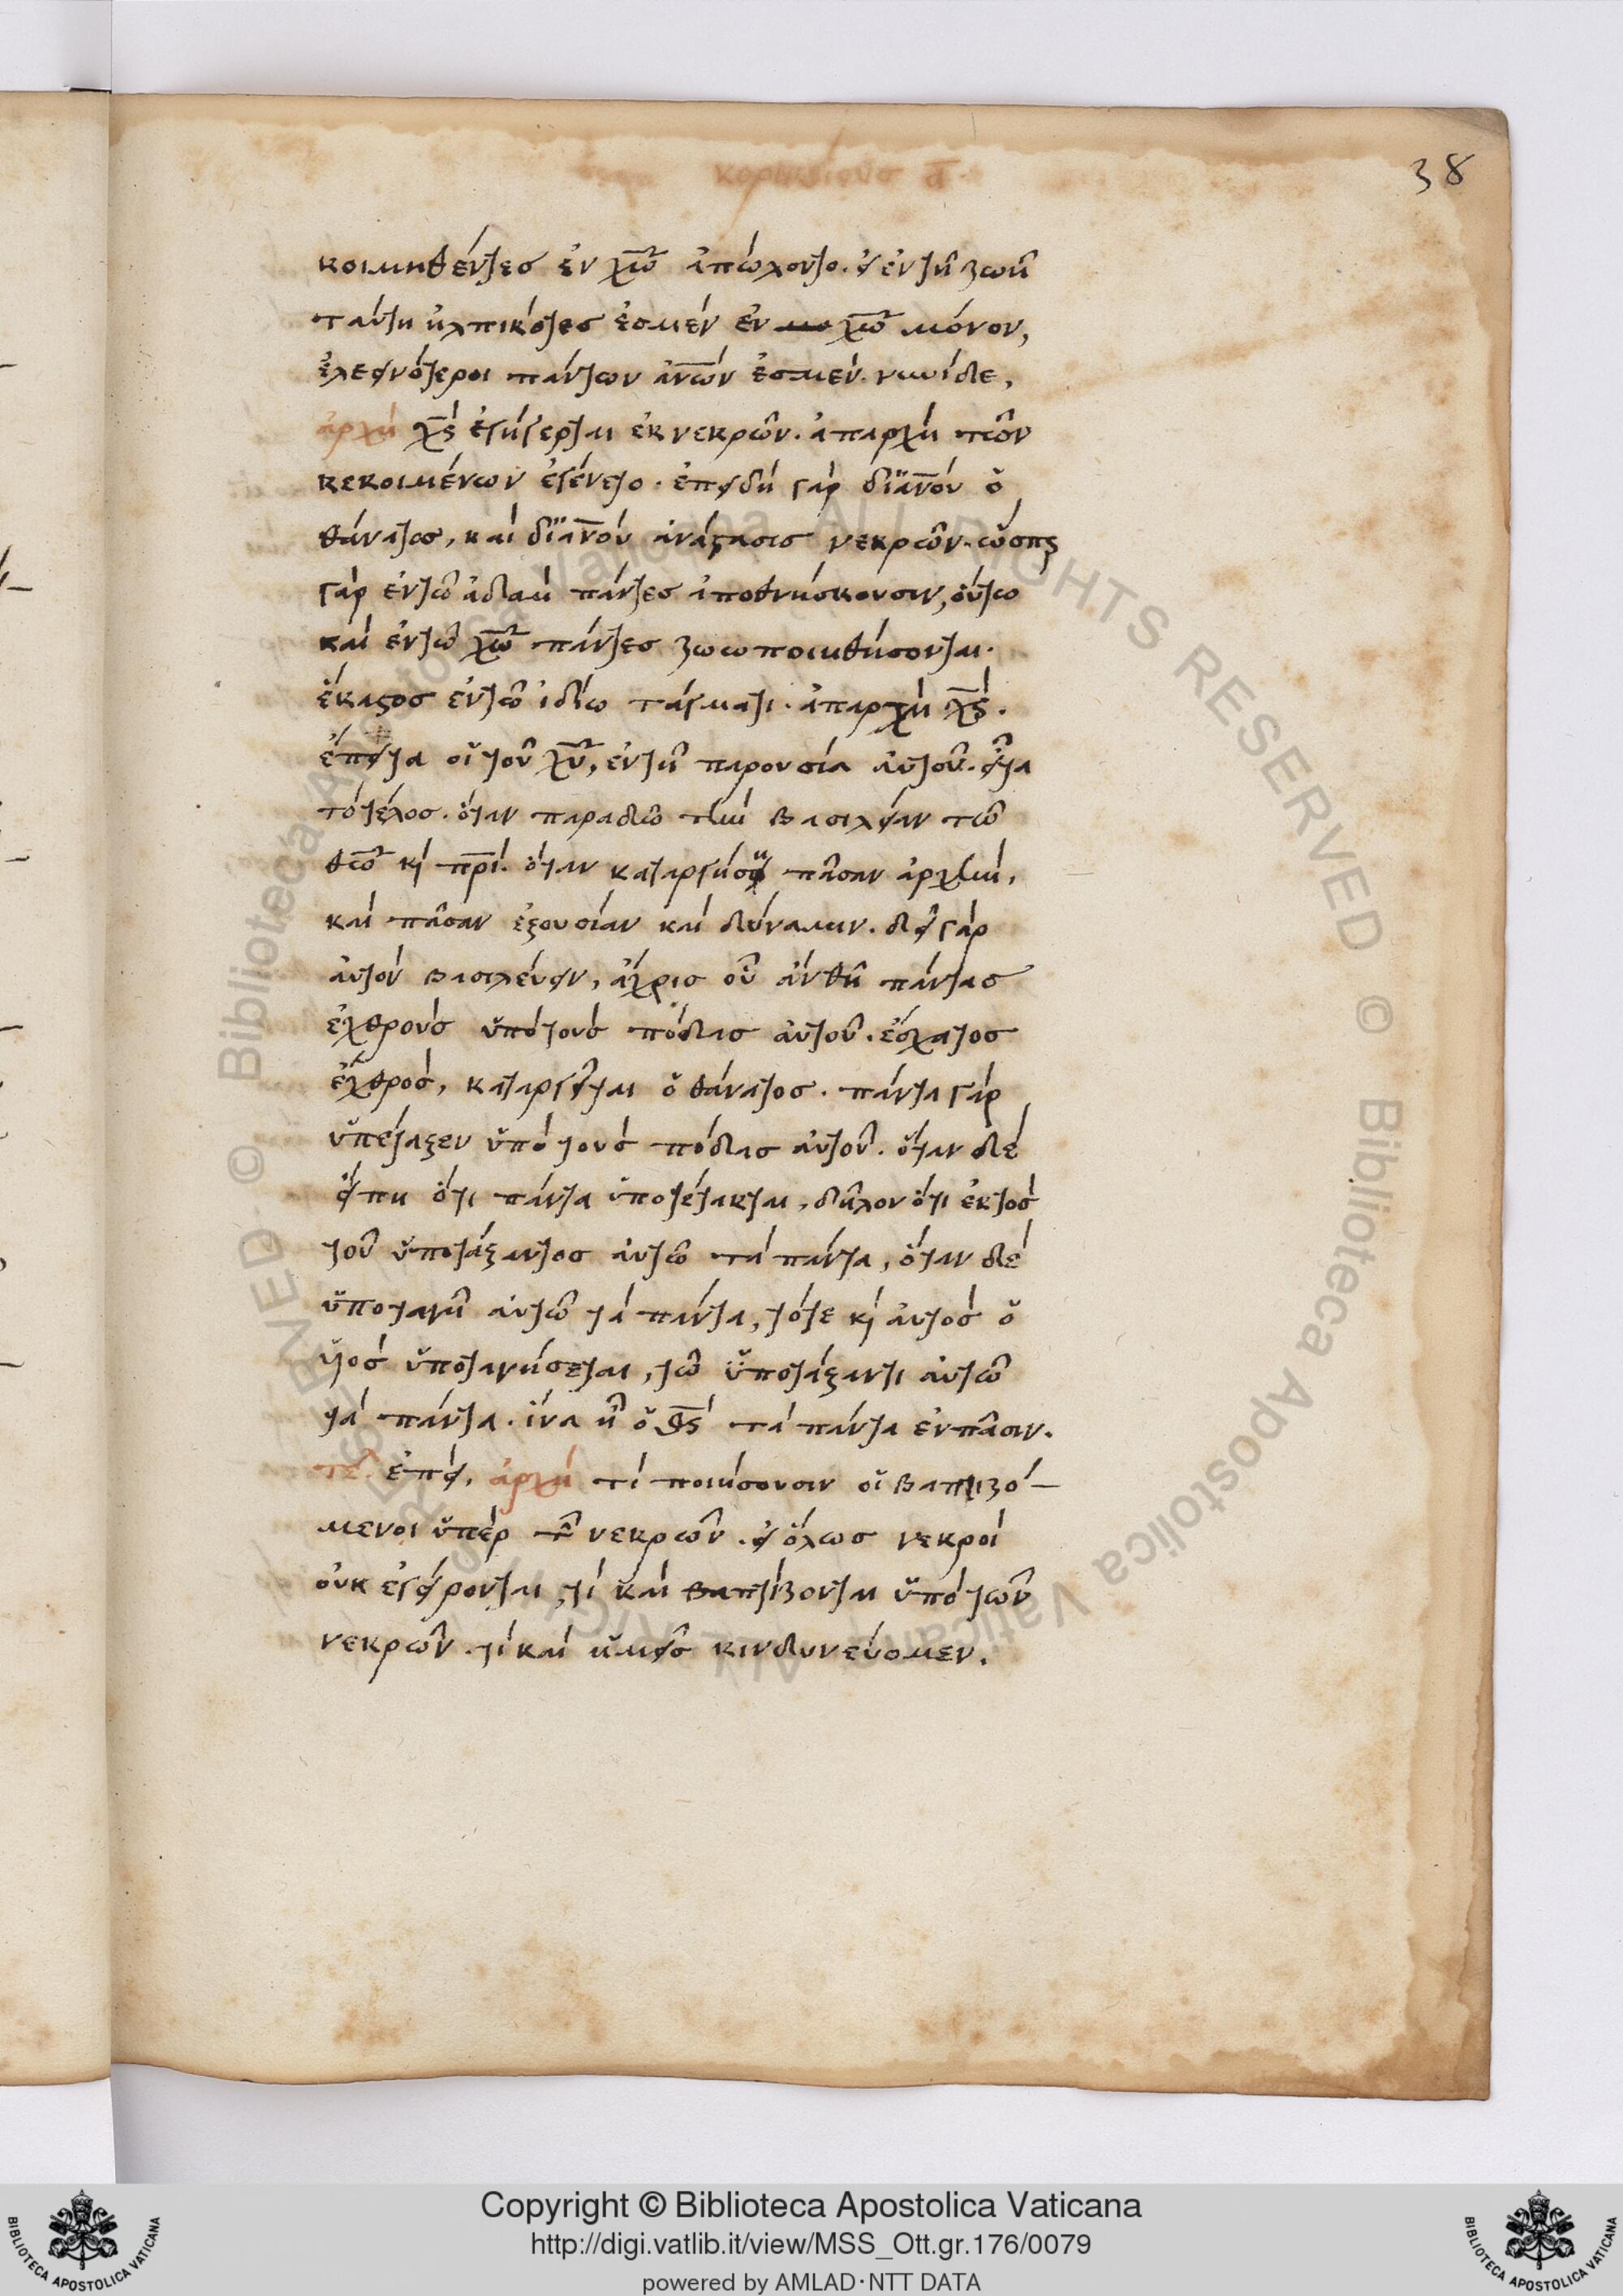 38
κορινθίους α
κοιμηθέντες ἐν χῶ ἀπώλοντο. εἰ ἐν τῆ ζωῆ
ταύτη ἠλπικότες ἐσμὲν ἐν χῶ μόνον,
ἐλεεινότεροι πάντων ἀνῶν ἐσμέν. νυνὶ δὲ,
ἀρχὴ χς ἐγήγερται ἐκ νεκρῶν. ἀπαρχὴ τῶν
κεκοιμένων ἐγένετο. ἐπειδὴ γὰρ δι ἀνου ὁ
θάνατος, καὶ δι ἀνου ἀνάστασις νεκρῶν. ὥσπερ
γὰρ ἐν τῶ ἀδὰμ πάντες ἀποθνήσκουσιν, οὕτω
καὶ ἐν τῶ χῶ πάντες ζωωποιηθήσονται.
ἕκαστος ἐν τῶ ἰδίω τάγματι. ἀπαρχὴ χς.
ἔπειτα οἱ τοῦ χυ, ἐν τῆ παρουσία αὐτοῦ. εἶτα
τὸ τέλος. ὅταν παραδῶ τὴν βασιλείαν τῶ
θῶ κὶ πρι. ὅταν καταργήση πᾶσαν ἀρχὴν,
καὶ πᾶσαν ἐξουσίαν καὶ δύναμιν. δεῖ γὰρ
αὐτὸν βασιλεύειν, ἄχρις οὗ ἂν θῆ πάντας
ἐχθροὺς ὑπὸ τοὺς πόδας αὐτοῦ. ἔσχατος
ἐχθρὸς, καταργεῖται ὁ θάνατος. πάντα γὰρ
ὑπέταξεν ὑπὸ τοὺς πόδας αὐτοῦ. ὅταν δὲ
εἴπη ὅτι πάντα ὑποτέτακται, δῆλον ὅτι ἐκτὸς
τοῦ ὑποτάξαντος αὐτῶ τὰ πάντα, ὅταν δὲ
ὑποταγῆ αὐτῶ τὰ πάντα, τότε κὶ αὐτὸς ὁ
υἱὸς ὑποταγήσεται, τῶ ὑποτάξαντι αὐτῶ
τὰ πάντα. ἵνα ἦ ὁ θς τὰ πάντα ἐν πᾶσιν.
τε. ἐπεὶ, ἀρχὴ τί ποιήσουσιν οἱ βαπτιζό-
μενοι ὑπὲρ τ νεκρῶν. εἰ ὅλως νεκροὶ
οὐκ ἐγείρονται, τί καὶ βαπτίζονται ὑπὸ τῶν
νεκρῶν. τί καὶ ἡμεῖς κινδυνεύομεν.
© Biblioteca Apostolica Vaticana ALL RIGHTS RESERVED © Biblioteca Apostolica Vaticana ALL RIGHTS RESERVED
Copyright © Biblioteca Apostolica Vaticana
http://digi.vatlib.it/view/MSS_Ott.gr.176/0079
powered by AMLAD·NTT DATA
BIBLIOTECA APOSTOLICA VATICANA
BIBLIOTECA APOSTOLICA VATICANA